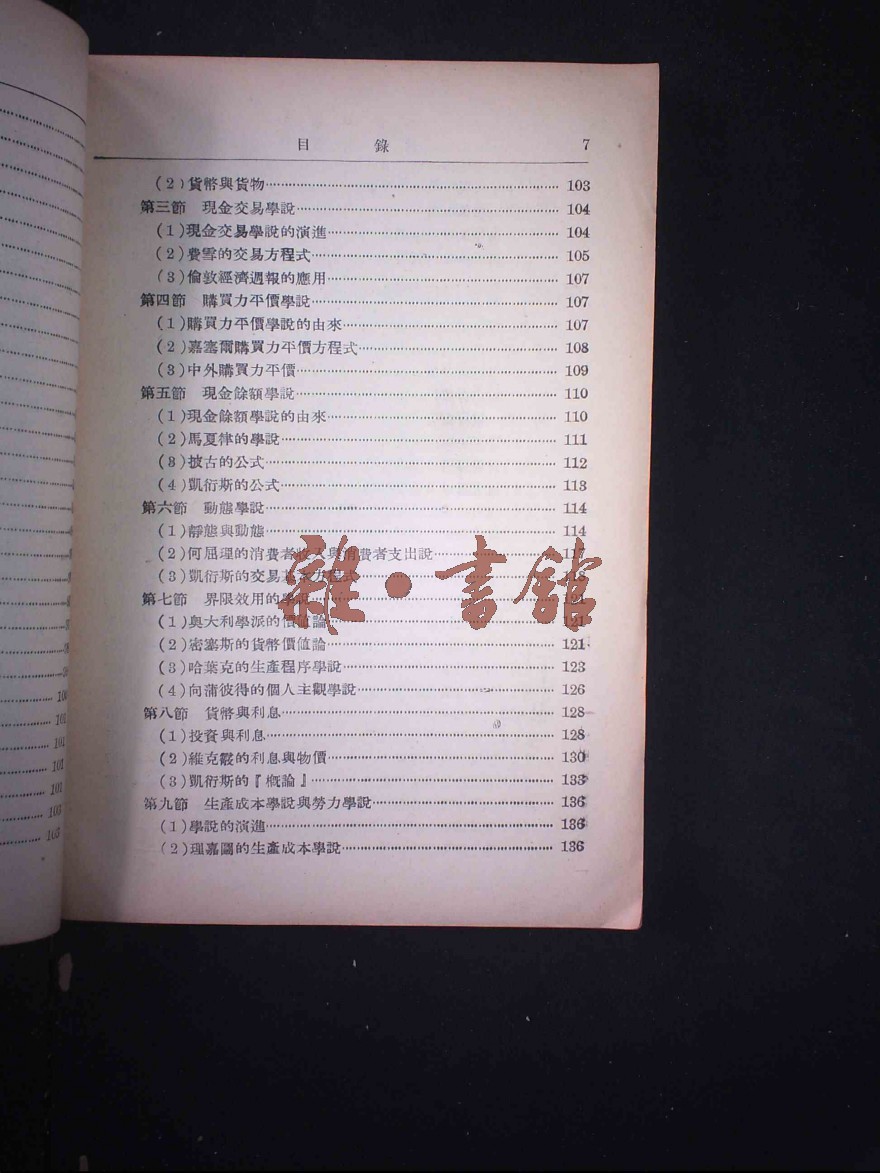 目錄 7
(2)貨幣與貨物 103
第三節 現金交易學說 104
(1)現金交易學說的演進 104
(2)費雪的交易方程式 105
(3)倫敦經濟週報的應用 107
第四節 購買力平價學說 107
(1)購買力平價學說的由來 107
(2)嘉塞爾購買力平價方程式 108
(3)中外購買力平價 109
第五節 現金餘額學說 110
(1)現金餘額學說的由來 110
(2)馬夏律的學說 111
(3)披古的公式 112
(4)凱衍斯的公式 113
第六節 動態學說 114
(1)靜態與動態 114
(2)何屈理的消費者收入與消費者支出說 117
(3)凱衍斯的交易基本方程式 118
第七節 界限效用的學說 121
(1)奧大利學派的價值論 121
(2)密塞斯的貨幣價值論 121
(3)哈葉克的生產程序學說 123
(4)向蒲彼得的個人主觀學說 126
第八節 貨幣與利息 128
(1)投資與利息 128
(2)維克的利息與物價 130
(3)凱衍斯的『概論』 133
第九節 生產成本學說與勞力學說 136
(1)學說的演進 136
(2)理嘉圖的生產成本學說 136
雜·書館
100
101
101
101
101
103
103